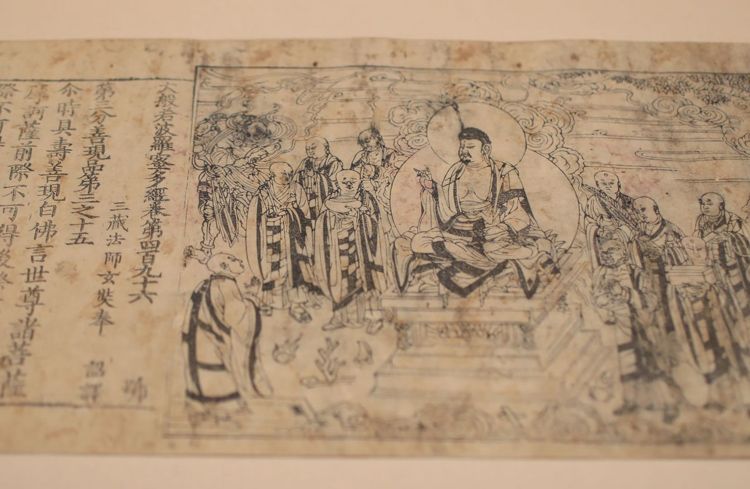 大般若波羅蜜多經卷第四百九十六 號
三藏法師玄奘奉 詔譯
第三分善現品第三之十五
尒時具壽善現白佛言世尊諸菩薩
摩訶薩前際不可得後
際不可